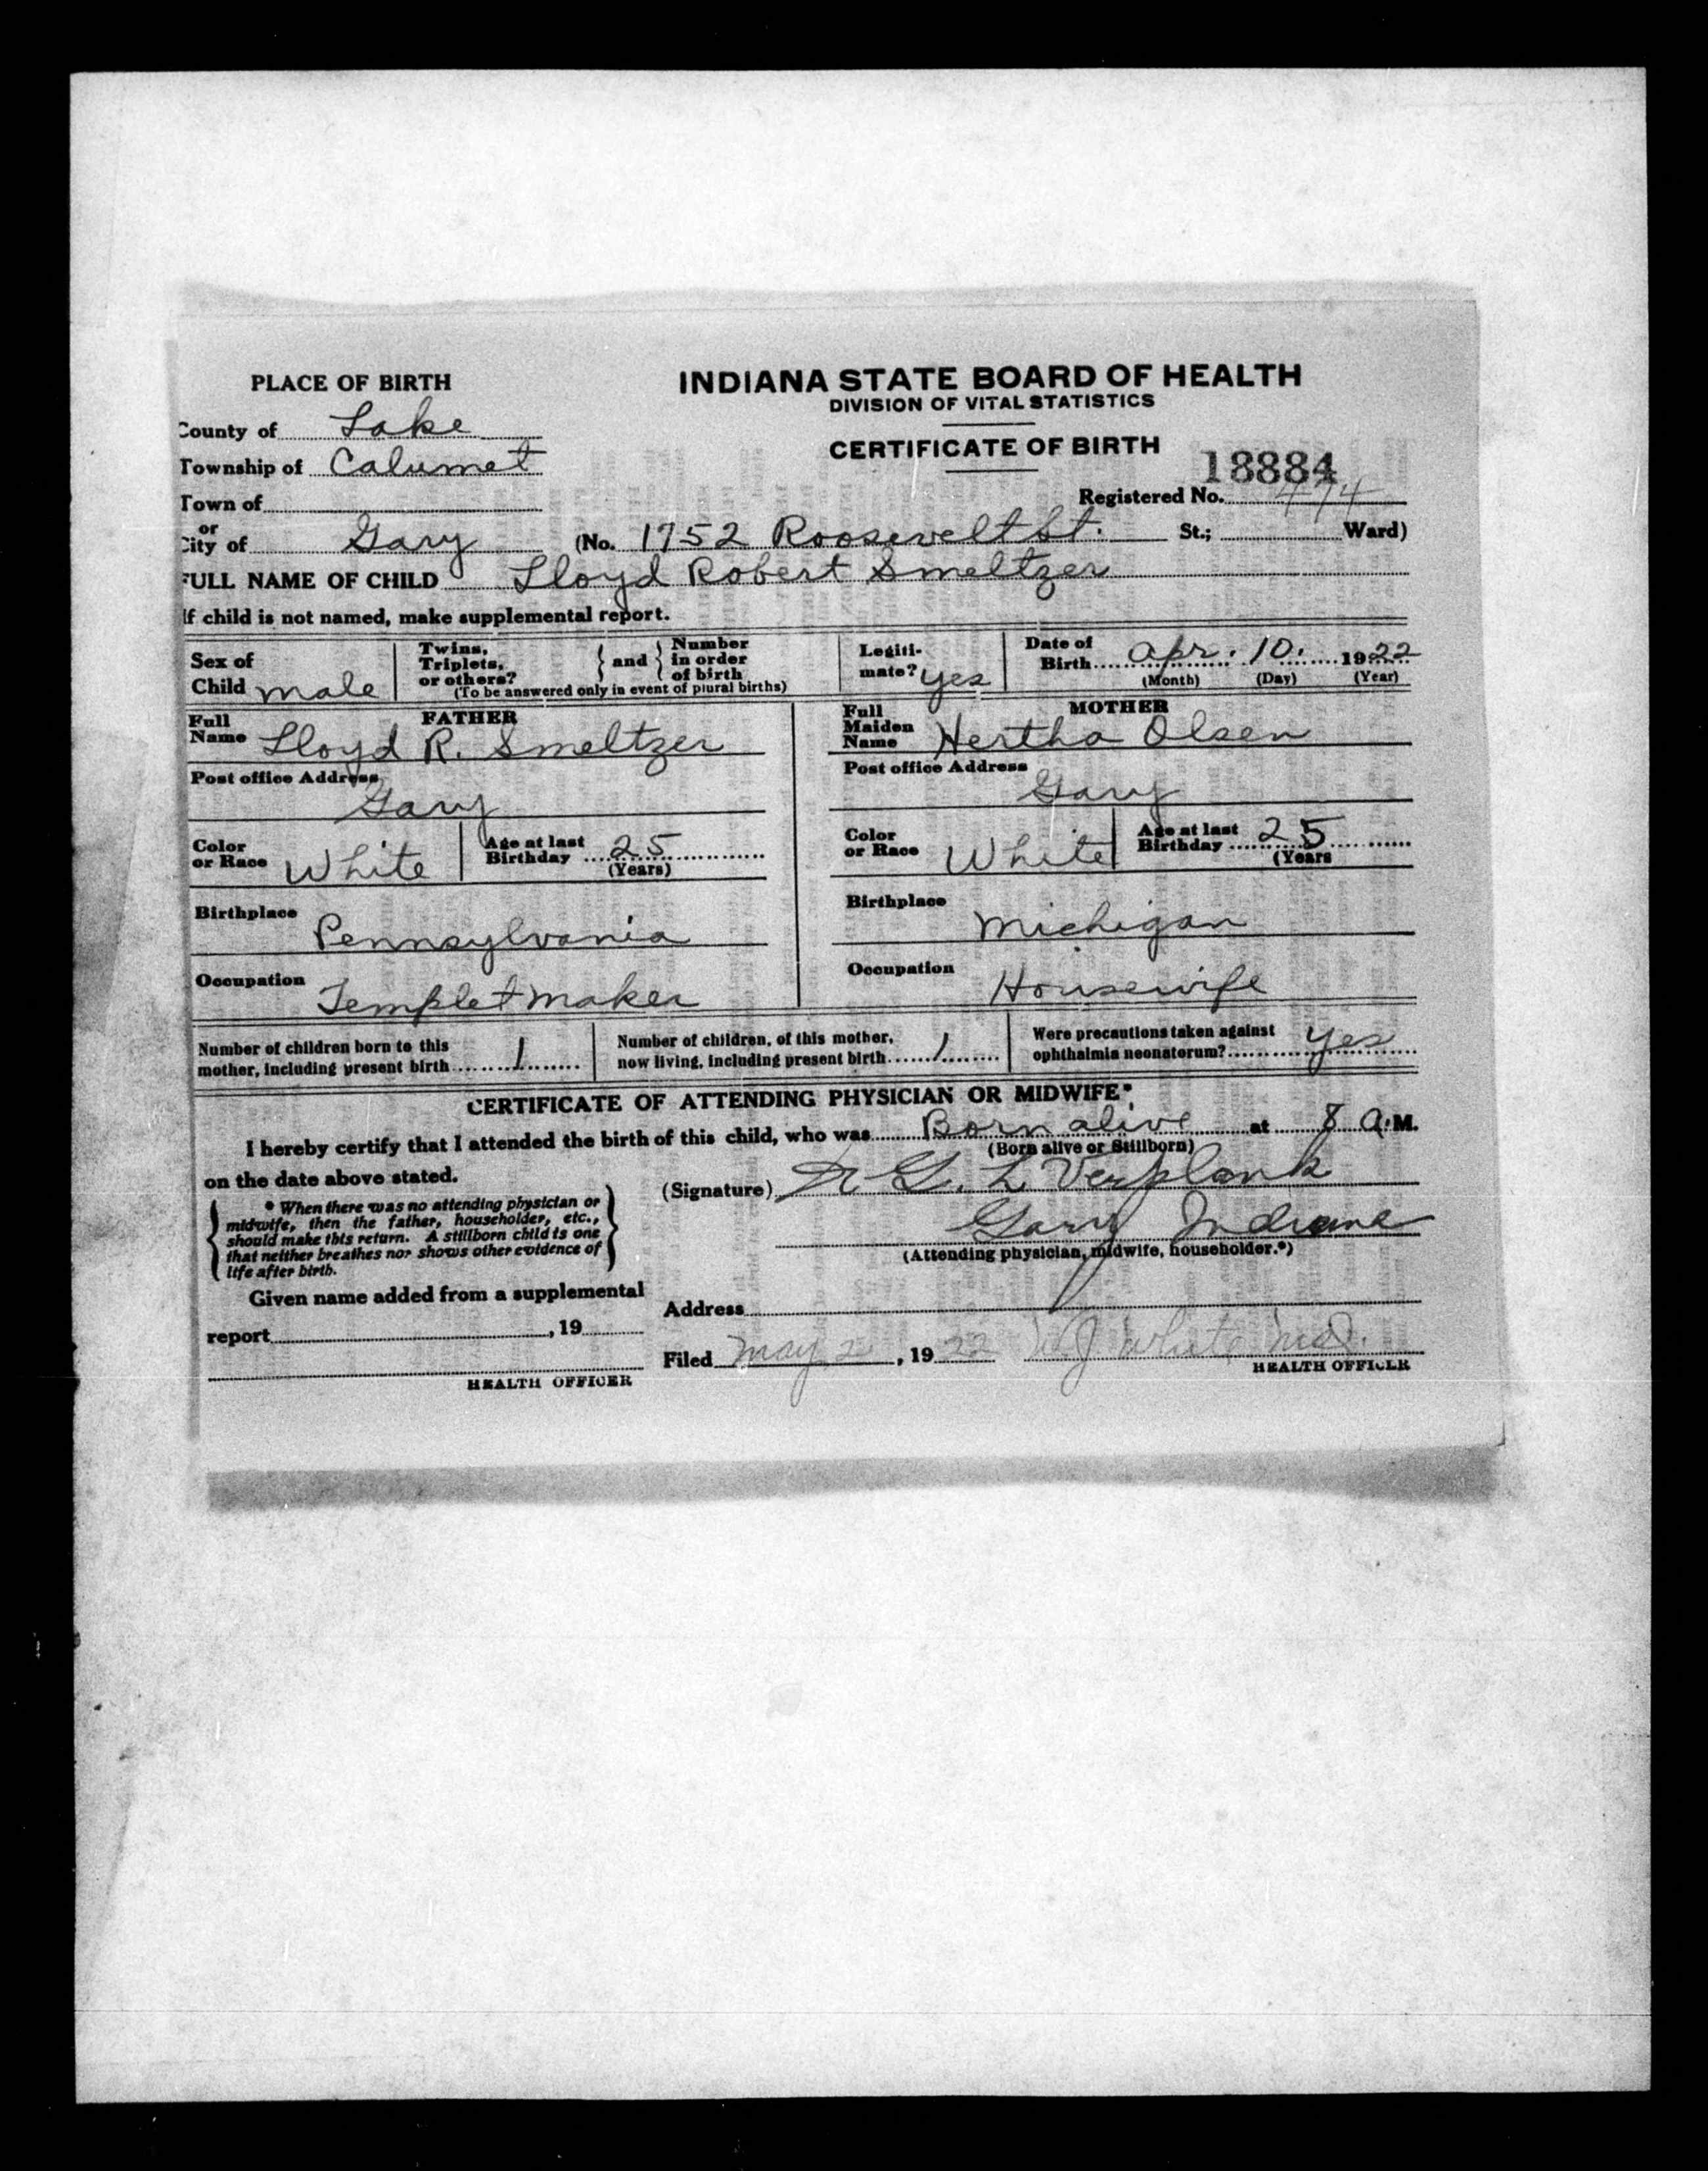 PLACE OF BIRTH
INDIANA STATE BOARD OF HEALTH
DIVISION OF VITAL STATISTICS
County of Lake
CERTIFICATE OF BIRTH
18884
Township of Calumet
Registered No. 474
Town of
or
City of Gary (No. 1752 Roosevelt St. St.; Ward)
FULL NAME OF CHILD Lloyd Robert Smeltzer
If child is not named, make supplemental report.
Sex of Child male
Twins, Triplets, or others? and Number in order of birth
(To be answered only in event of plural births)
Legiti-mate? yes
Date of Birth Apr. 10. 1922
(Month) (Day) (Year)
FATHER
Full Name Lloyd R. Smeltzer
Post office Address
Gary
Color or Race White
Age at last Birthday 25
(Years)
Birthplace
Pennsylvania
Occupation
Templet maker
MOTHER
Full Maiden Name Hertha Olsen
Post office Address
Gary
Color or Race White
Age at last Birthday 25
(Years
Birthplace
Michigan
Occupation
Housewife
Number of children born to this mother, including present birth 1
Number of children, of this mother, now living, including present birth 1
Were precautions taken against ophthalmia neonatorum? yes
CERTIFICATE OF ATTENDING PHYSICIAN OR MIDWIFE*
I hereby certify that I attended the birth of this child, who was Born alive at 8 A.M.
(Born alive or Stillborn)
on the date above stated.
(Signature) G. L. Verplank
Gary Indiana
(Attending physician, midwife, householder.*)
* When there was no attending physician or
midwife, then the father, householder, etc.,
should make this return. A stillborn child is one
that neither breathes nor shows other evidence of
life after birth.
Given name added from a supplemental
report , 19
HEALTH OFFICER
Address
Filed May 2 , 1922 W J White M.D.
HEALTH OFFICER